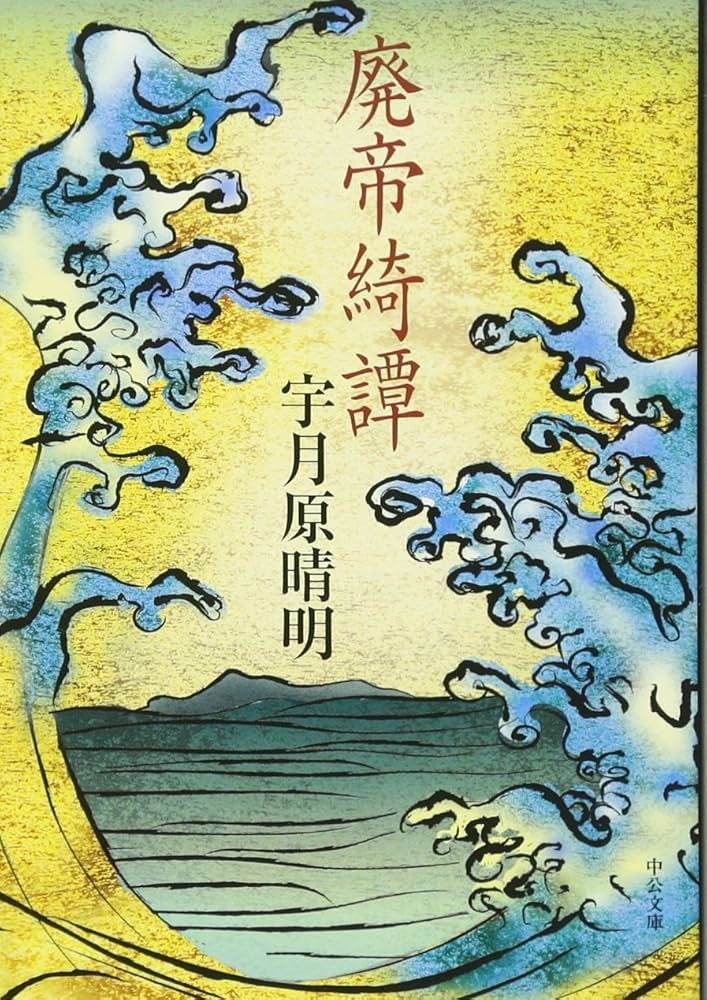 廃帝綺譚
宇月原晴明
中公文庫